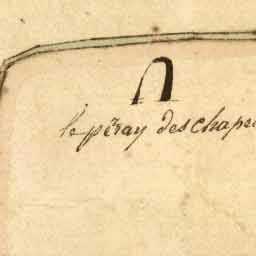 le përay des chape